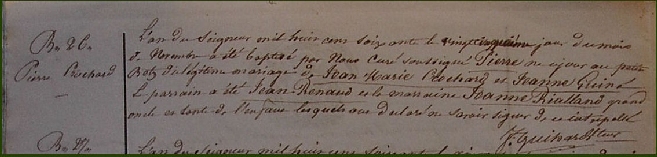 Bn 26e
Pierre Rochard
L'an du Seigneur mil huit cens soixante le vingt cinquième jour du mois
de Novembre a été baptisé par Nous Curé soussigné Pierre né ce jour au petit
Betz du légitime mariage de Jean Marie Rochard et Jeanne
Le parrain a été Jean Renaud et la marraine Jeanne Rialland grand
oncle et tante de l'enfant lesquels ont déclaré ne savoir signer de ce interpellés
Guihard
Bn 27e
L'an du Seigneur mil huit cens soixante le